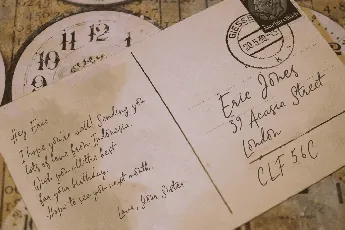 11 12 1
10
9
Hey Eric
I hope you're well! Sending you
lots of love from Indonesia.
Wish you all the best
for your birthday.
Hope to see you next month.
Love, Your Sister
GIESSEN
Eric Jones
39 Acacia Street
London
CLF 56C